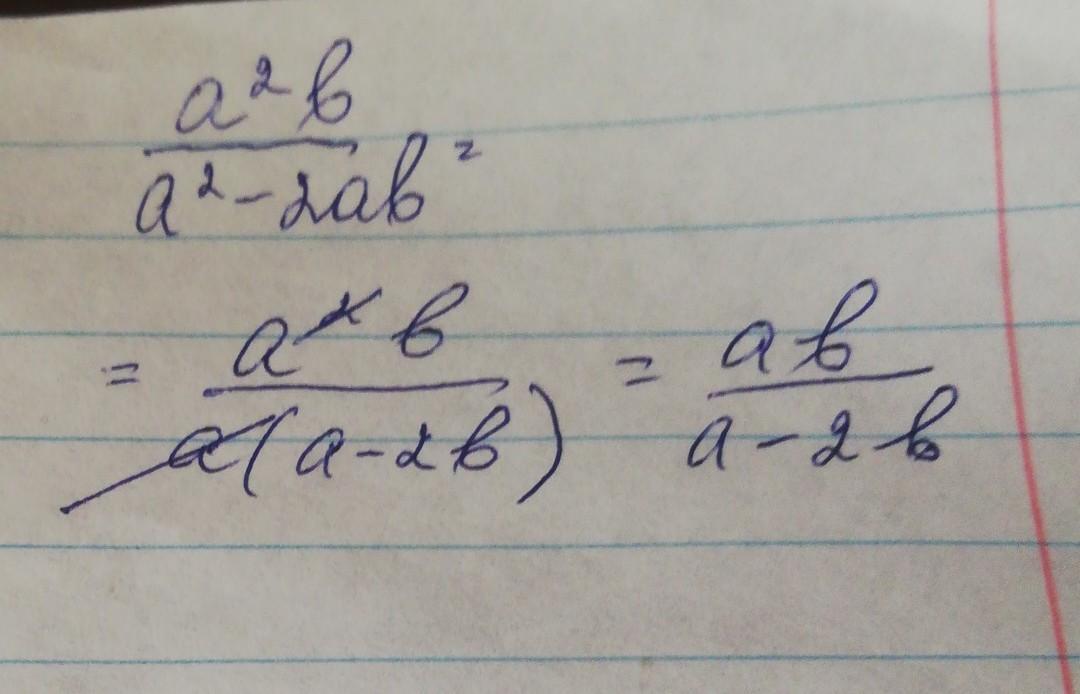 a²b
a²-2ab =
= a²b = ab
a(a-2b) a-2b